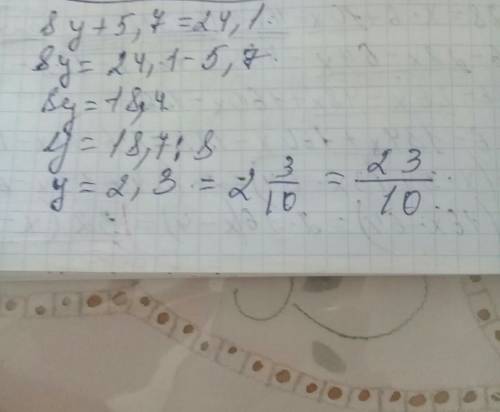 8y + 5,7 = 24,1.
8y = 24,1 - 5,7.
8y = 18,4
y = 18,7 : 8
y = 2,3 = 2 3/10 = 23/10